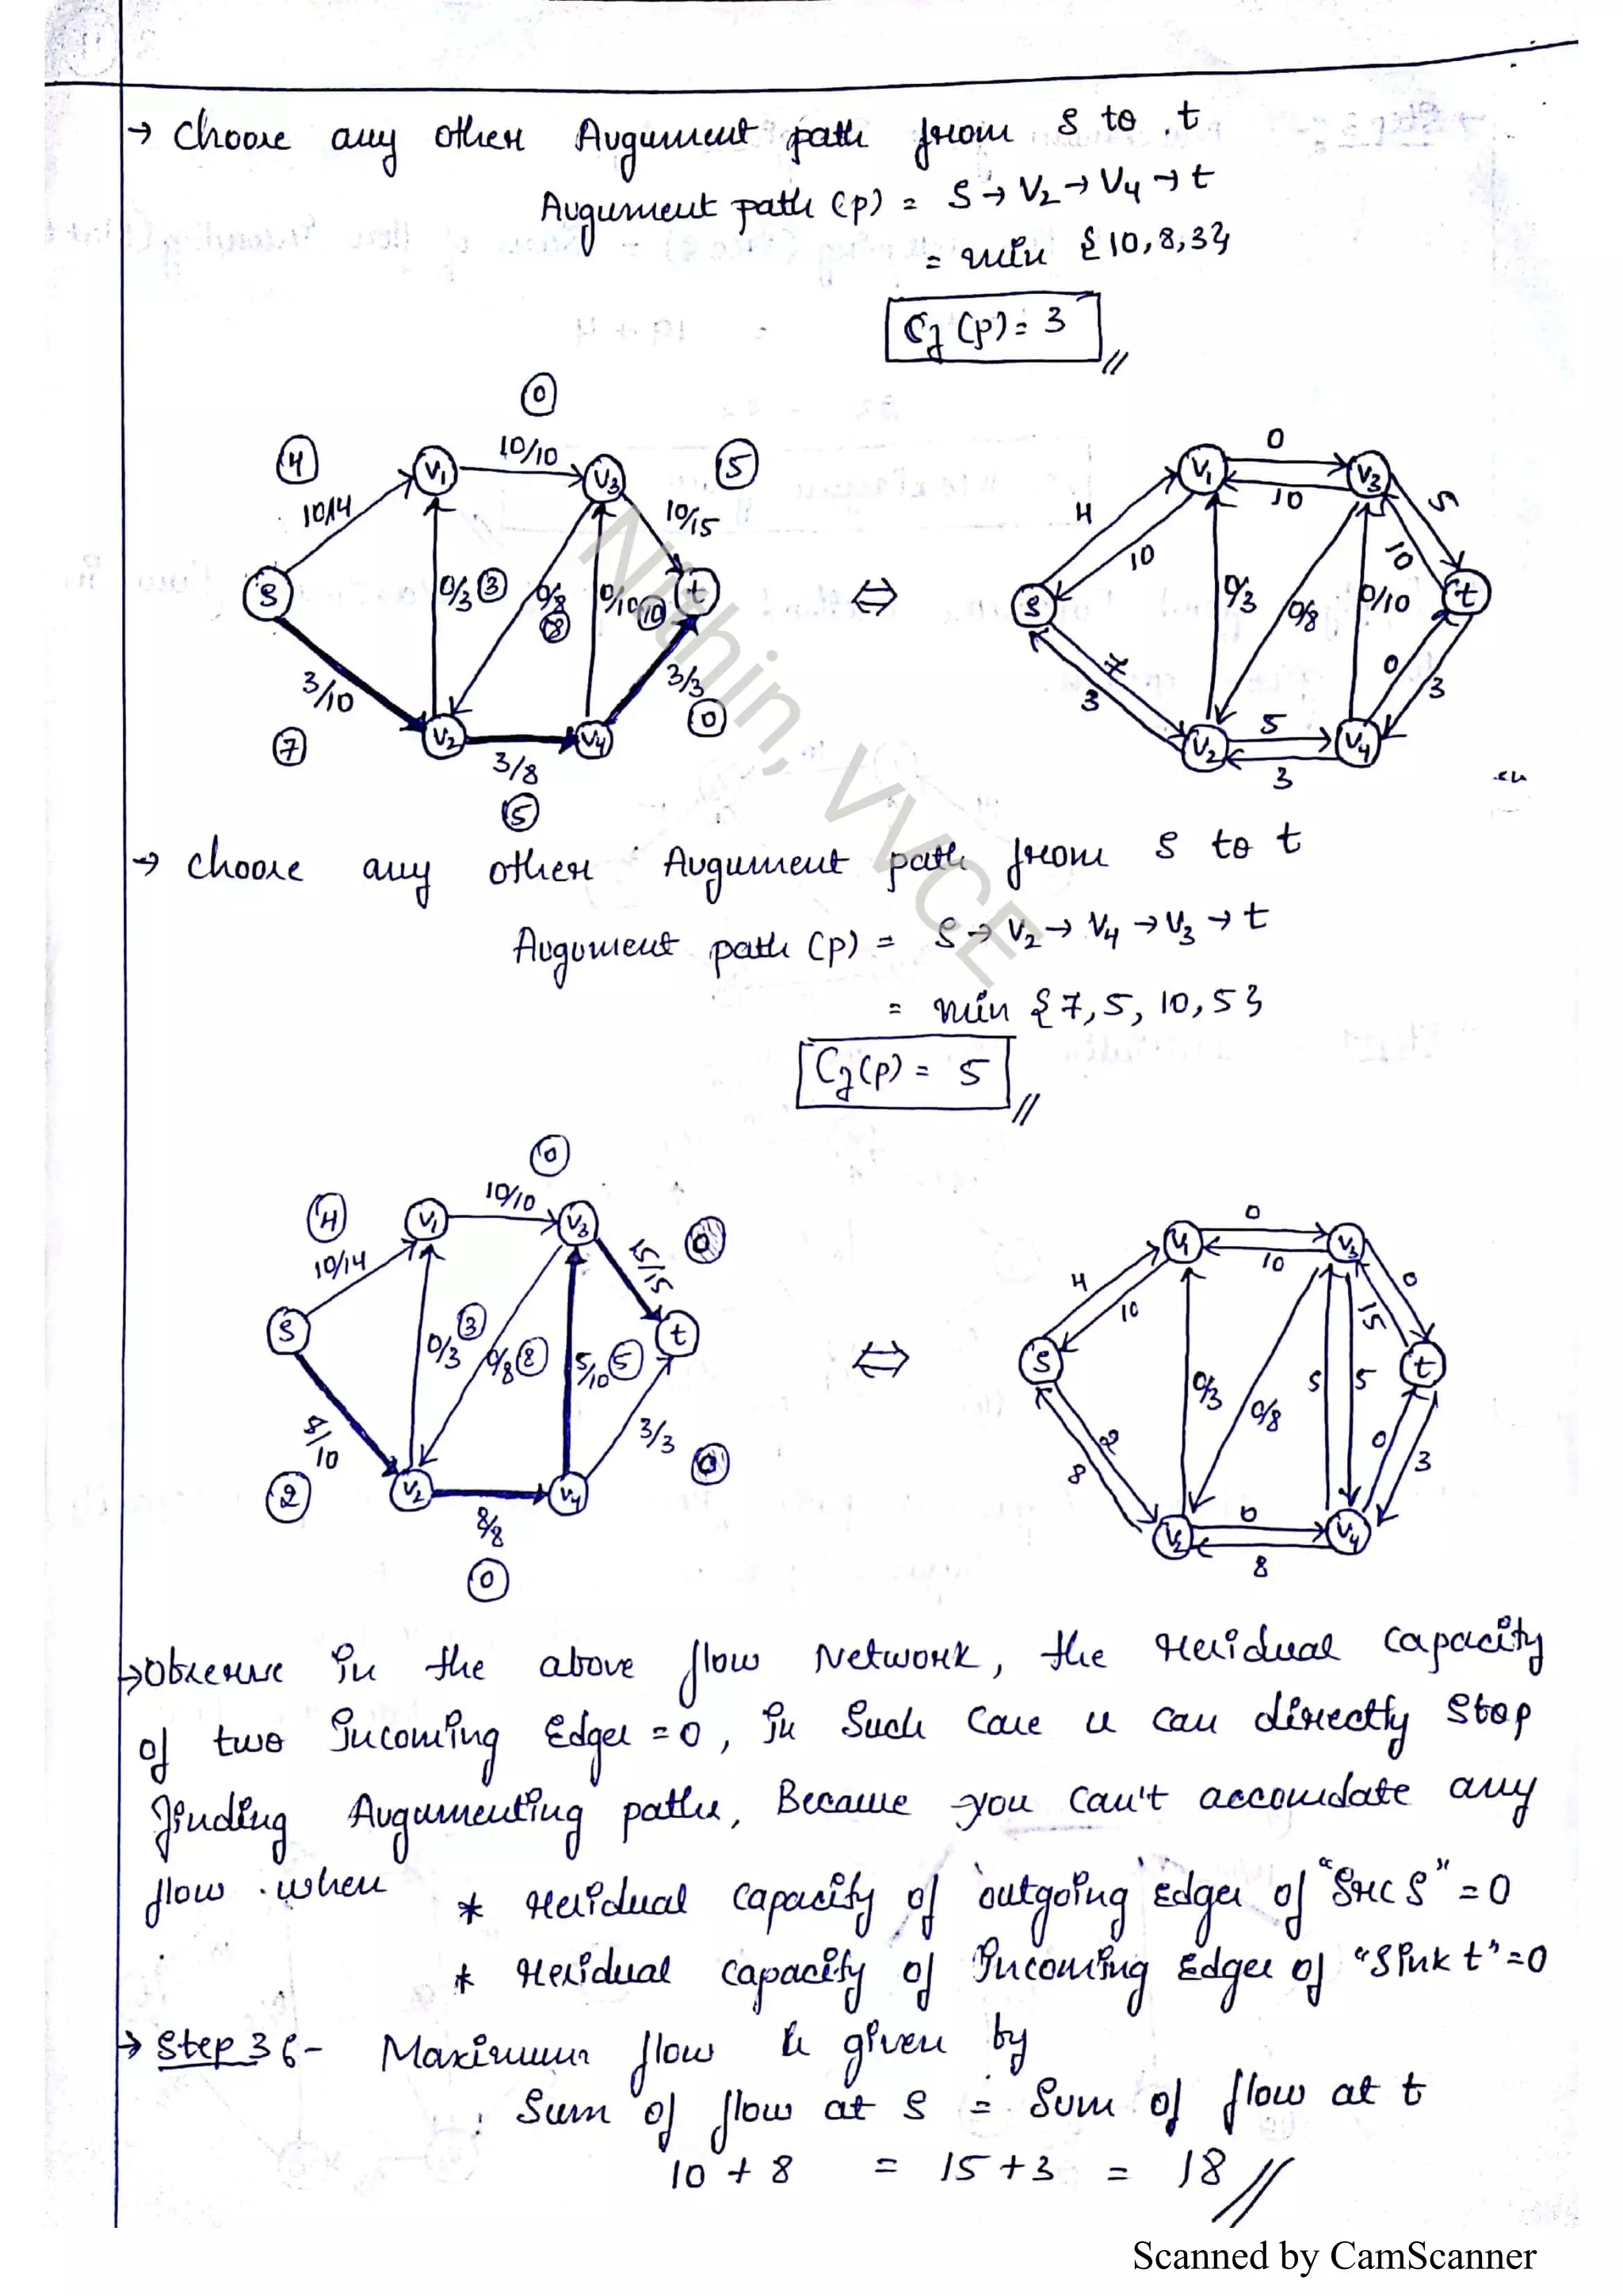 → Choose any other Augument path from S to t
Augument path (p) = S → V2 → V4 → t
= min {10, 8, 3}
Cf (p) = 3 //
0
4 10/14 V1 10/10 V3 5 10/15
S 0/3 3 0/8 8 0/10 10 t
3/10 3/3
7 V2 3/8 V4 0
5
⇔
0
V1 V3
4 10 10 5
S 10 0/3 0/8 0/10 t
7 3 0 3
V2 5 V4
3
→ Choose any other Augument path from S to t
Augument path (p) = S → V2 → V4 → V3 → t
= min {7, 5, 10, 5}
Cf (p) = 5 //
0
4 10/14 V1 10/10 V3 15/15 0
S 0/3 3 0/8 8 5/10 5 t
8/10 3/3
2 V2 8/8 V4 0
0
⇔
0
V1 V3
4 10 10 0
S 15 t
0/3 0/8 5 5
2 8 0 3
V2 0 V4
8
→ Observe in the above flow Network, the residual capacity
of two Incoming Edges = 0, in Such Case u can directly Stop
finding Augumenting paths, Because you can't accomdate any
flow when * residual capacity of outgoing Edges of "Src S" = 0
* residual capacity of Incoming Edges of "Sink t" = 0
→ Step 3 :- Maximum flow is given by
Sum of flow at S = Sum of flow at t
10 + 8 = 15 + 3 = 18 //
Nithin, VVCE
Scanned by CamScanner